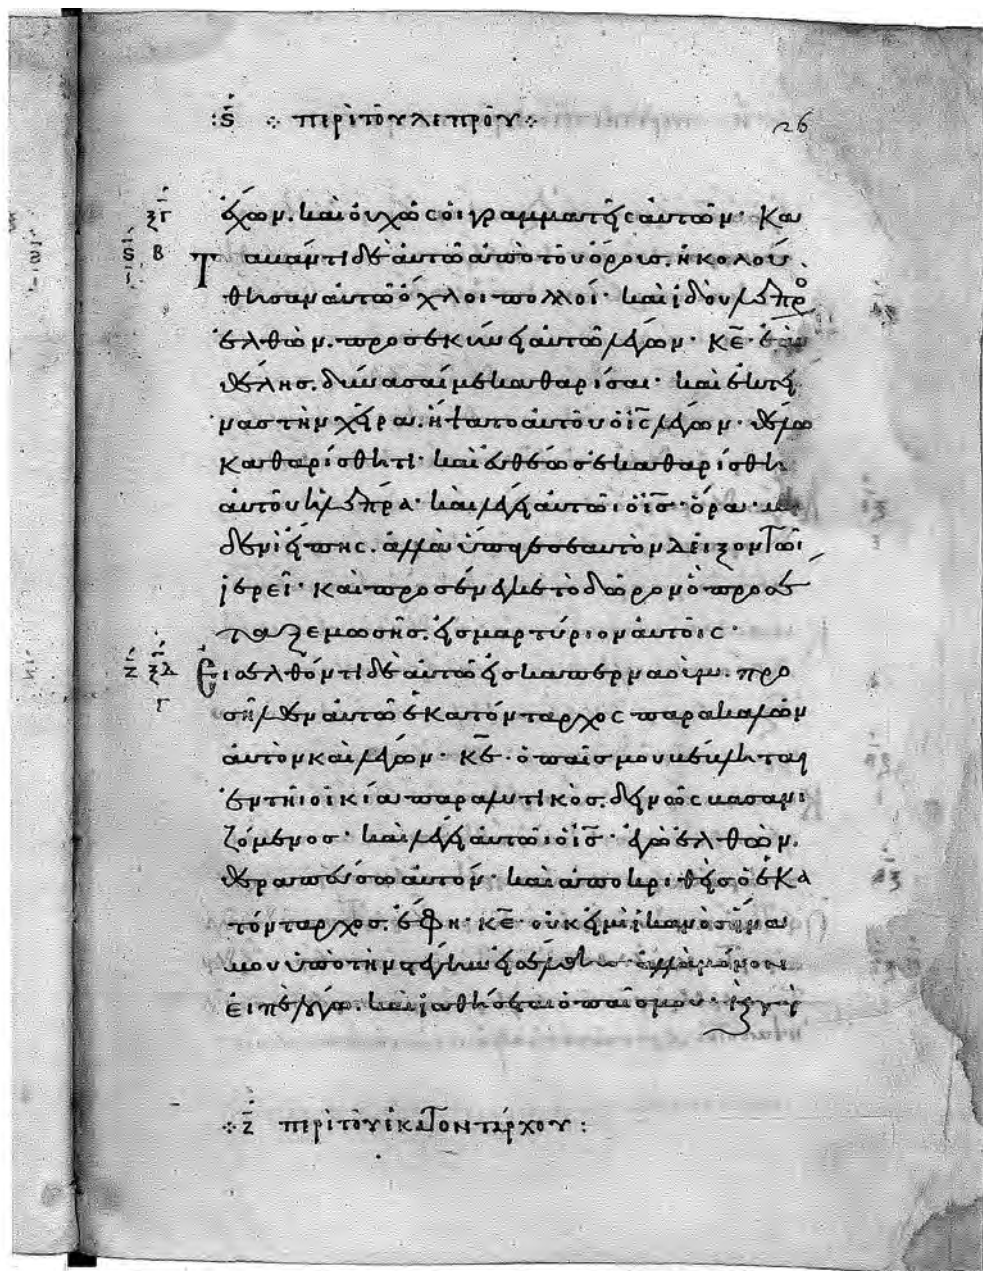 :ϛ ⁘ περὶ τοῦ λεπροῦ ⁘
26
ξγ ἔχων. καὶ οὐχ ὡς οἱ γραμματεῖς αὐτῶν· Κα
ϛ β Ταβάντι δὲ αὐτῶ ἀπὸ τοῦ ὄρους. ἠκολού
θησαν αὐτῶ ὄχλοι πολλοί· καὶ ἰδοὺ λεπρὸ
ἐλθὼν. προσεκύνει αὐτῶ λέγων· κε̅· ἐὰν
θέλης. δύνασαί με καθαρίσαι· καὶ ἐκτεί
νας τὴν χεῖρα. ἥψατο αὐτοῦ ὁ ις̅ λέγων· θέλω
καθαρίσθητι· καὶ εὐθέως ἐκαθαρίσθη
αὐτοῦ ἡ λέπρα· καὶ λέγει αὐτῶ ὁ ις̅· ὅρα· μη
δενὶ εἴπης. ἀλλὰ ὕπαγε σεαυτὸν δεῖξον τῶ
ἱερεῖ· καὶ προσένεγκε τὸ δῶρον ὃ προσέ
ταξε μωσῆς. εἰς μαρτύριον αὐτοῖς·
ζ ξδ γ Εἰσελθόντι δὲ αὐτῶ εἰς καπερναούμ. προ
σῆλθεν αὐτῶ ἑκατόνταρχος παρακαλῶν
αὐτὸν καὶ λέγων· κε̅· ὁ παῖς μου βέβληται
ἐν τῆ οἰκία παραλυτικὸς. δεινῶς βασανι
ζόμενος· καὶ λέγει αὐτῶ ὁ ις̅· ἐγὼ ἐλθὼν.
θεραπεύσω αὐτόν· καὶ ἀποκριθεὶς ὁ ἑκα
τόνταρχος. ἔφη· κε̅· οὐκ εἰμὶ ἱκανὸς ἵνα
μου ὑπὸ τὴν στέγην εἰσέλθης· ἀλλὰ μόνον
εἰπὲ λόγω. καὶ ἰαθήσεται ὁ παῖς μου· καὶ γὰρ
⁘ ζ περὶ τοῦ ἑκατοντάρχου :